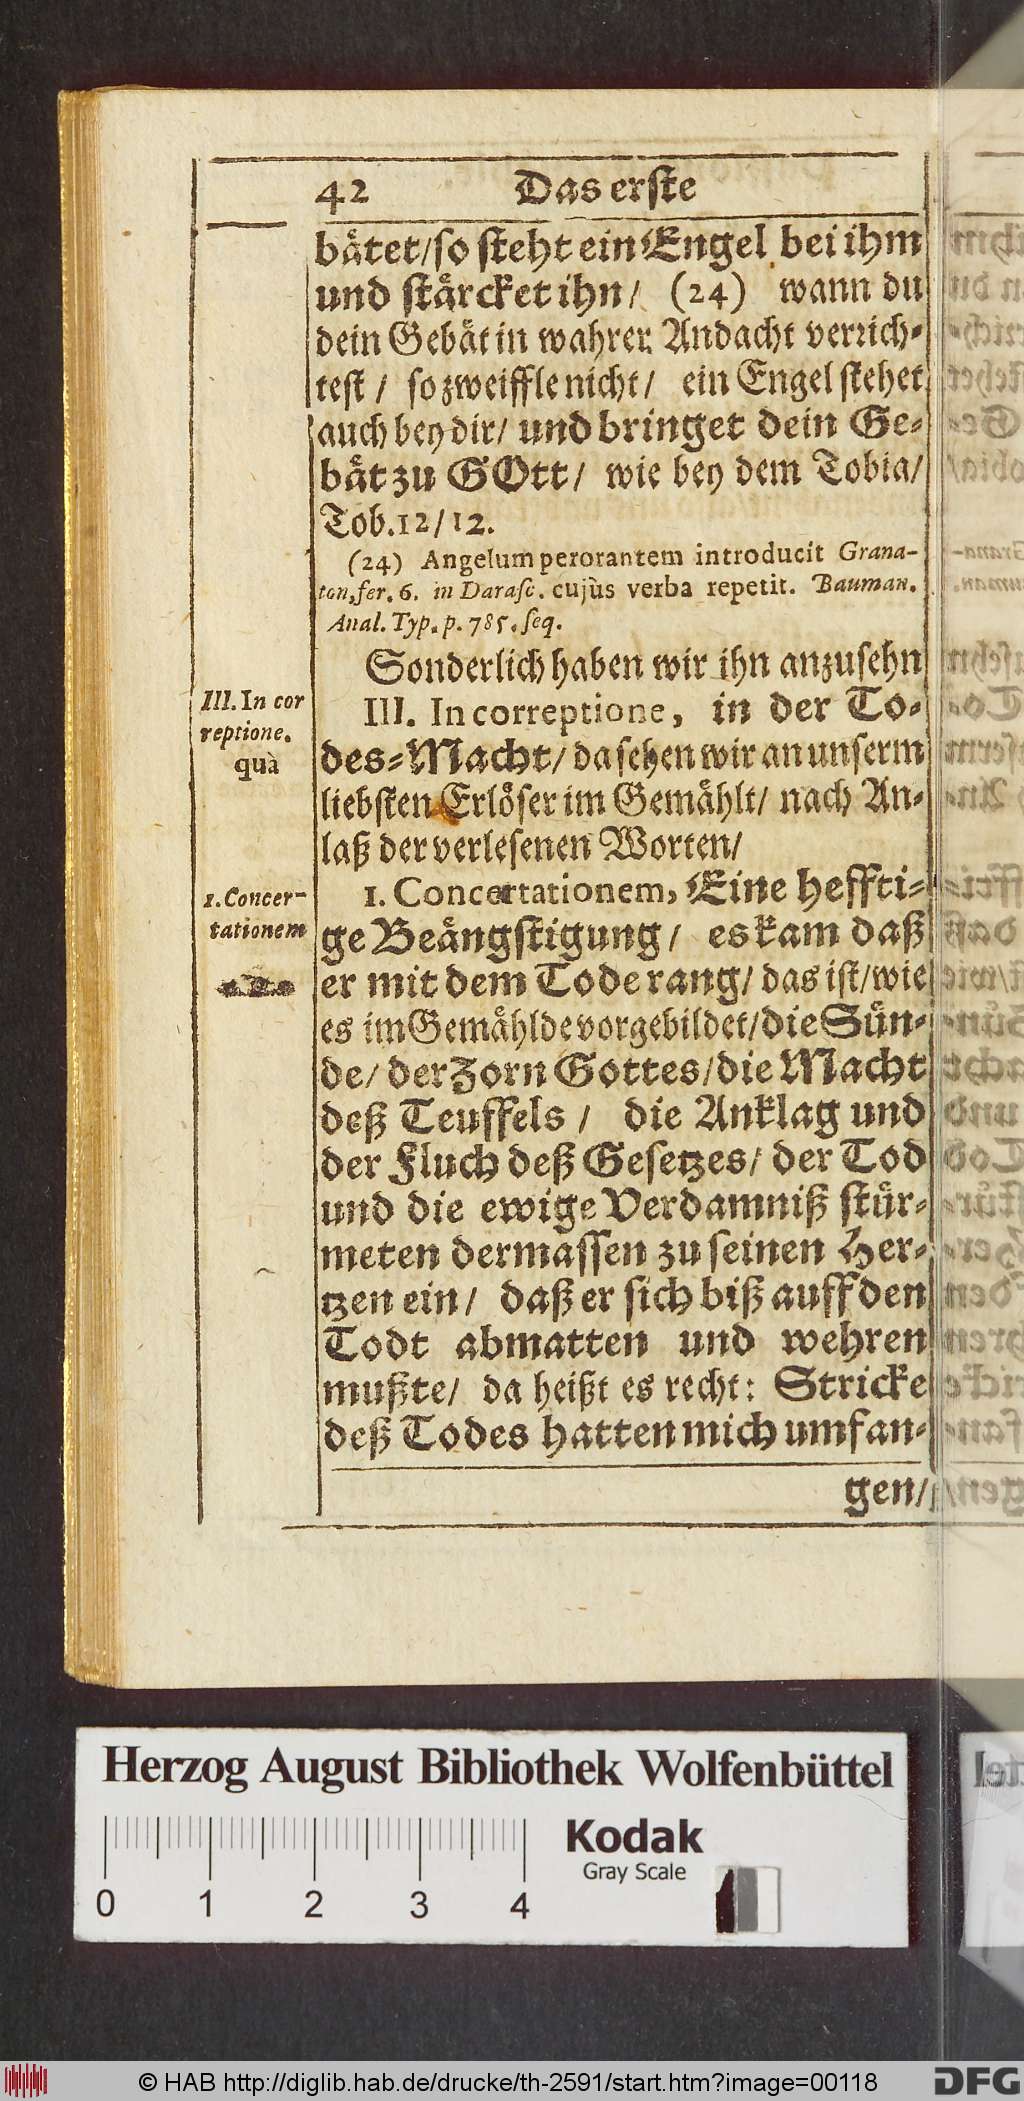 42 Das erste
bätet/so steht ein Engel bei ihm
und stärcket ihn/ (24) wann du
dein Gebät in wahrer Andacht verrich-
test / so zweiffle nicht/ ein Engel stehet
auch bey dir/ und bringet dein Ge-
bät zu GOtt/ wie bey dem Tobia/
Tob.12/12.
(24) Angelum perorantem introducit Grana-
ten, fer. 6. in Darasc. cujùs verba repetit. Bauman.
Anal. Typ. p. 785. seq.
Sonderlich haben wir ihn anzusehn
III. In cor
reptione.
quà
III. In correptione, in der To-
des-Macht/ da sehen wir an unserm
liebsten Erlöser im Gemählt/ nach An-
laß der verlesenen Worten/
1. Concer-
tationem
1. Concertationem, Eine heffti-
ge Beängstigung/ es kam daß
er mit dem Tode rang/ das ist/wie
es im Gemählde vorgebildet/die Sün-
de/ der Zorn Gottes/die Macht
deß Teuffels / die Anklag und
der Fluch deß Gesetzes/ der Tod
und die ewige Verdamniß stür-
meten dermassen zu seinen Her-
tzen ein/ daß er sich biß auff den
Todt abmatten und wehren
mußte/ da heißt es recht: Stricke
deß Todes hatten mich umfan-
gen/
Herzog August Bibliothek Wolfenbüttel
Kodak
Gray Scale
0 1 2 3 4
© HAB http://diglib.hab.de/drucke/th-2591/start.htm?image=00118
DFG